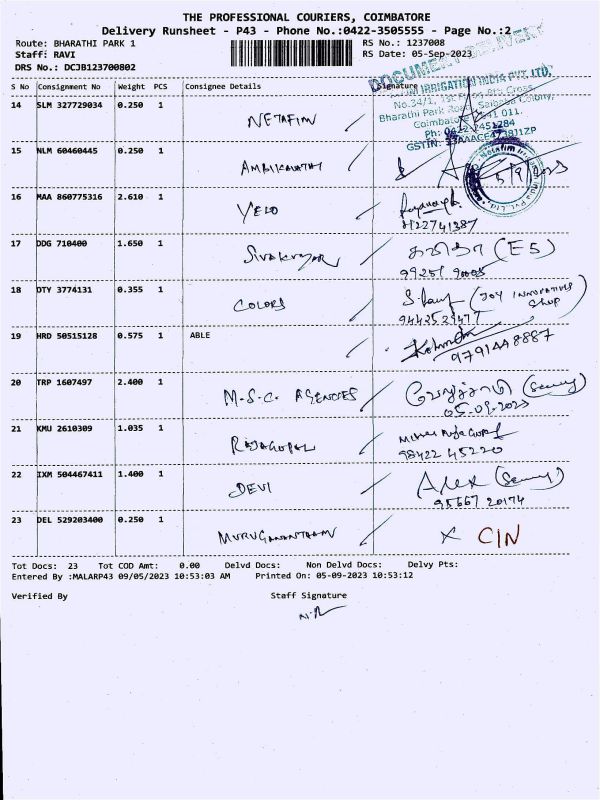 THE PROFESSIONAL COURIERS, COIMBATORE
Delivery Runsheet - P43 - Phone No.:0422-3505555 - Page No.:2
Route: BHARATHI PARK 1 RS No.: 1237008
Staff: RAVI RS Date: 05-Sep-2023
DRS No.: DCJB123700802
DOCUMENT DELIVERY
S No Consignment No Weight PCS Consignee Details Signature
IRRIGATION INDIA PVT. LTD.
14 SLM 327729034 0.250 1 NETAFIM
Bharathi Park Road, Saibaba Colony,
15 NLM 60460445 0.250 1 AMBIKAVATHI
5/9/2023
16 MAA 860775316 2.610 1 YELO
17 DDG 710400 1.650 1 SIVAKUMAR (E5)
18 DTY 3774131 0.355 1 COLORS
19 HRD 50515128 0.575 1 ABLE
9791448887
20 TRP 1607497 2.400 1 M.S.C. AGENCIES
05-09-2023
21 KMU 2610309 1.035 1 RAJAGOPAL
98422 45220
22 IXM 504467411 1.400 1 DEVI Alex
95667 20174
23 DEL 529203400 0.250 1 MURUGANANTHAM X CIN
Tot Docs: 23 Tot COD Amt: 0.00 Delvd Docs: Non Delvd Docs: Delvy Pts:
Entered By :MALARP43 09/05/2023 10:53:03 AM Printed On: 05-09-2023 10:53:12
Verified By Staff Signature